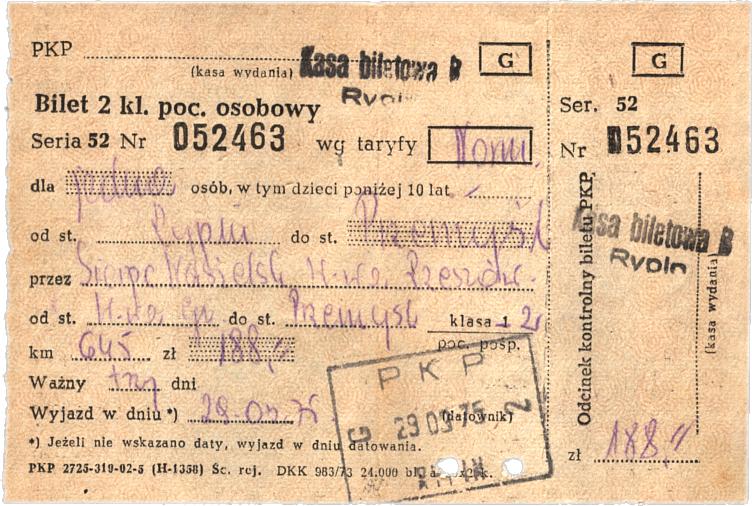 PKP
(kasa wydania)
Kasa biletowa B
Rypin
G
Bilet 2 kl. poc. osobowy
Seria 52 Nr 052463 wg taryfy Norm.
dla jedna osób, w tym dzieci poniżej 10 lat
od st. Rypin do st. Przemyśl
przez Sierpc Nasielsk W-wa Rzeszów
od st. W-wa Gł do st. Przemyśl klasa 1-2
poc. posp.
km 645 zł 188,"
Ważny trzy dni
Wyjazd w dniu *) 29.03.75 (datownik)
PKP
G 29 03 75 2
RYPIN
*) Jeżeli nie wskazano daty, wyjazd w dniu datowania.
PKP 2725-319-02-5 (H-1358) Śc. rej. DKK 983/73 24.000 bl.
G
Ser. 52
Nr 052463
Odcinek kontrolny biletu PKP.
Kasa biletowa B
Rypin
(kasa wydania)
zł 188,"